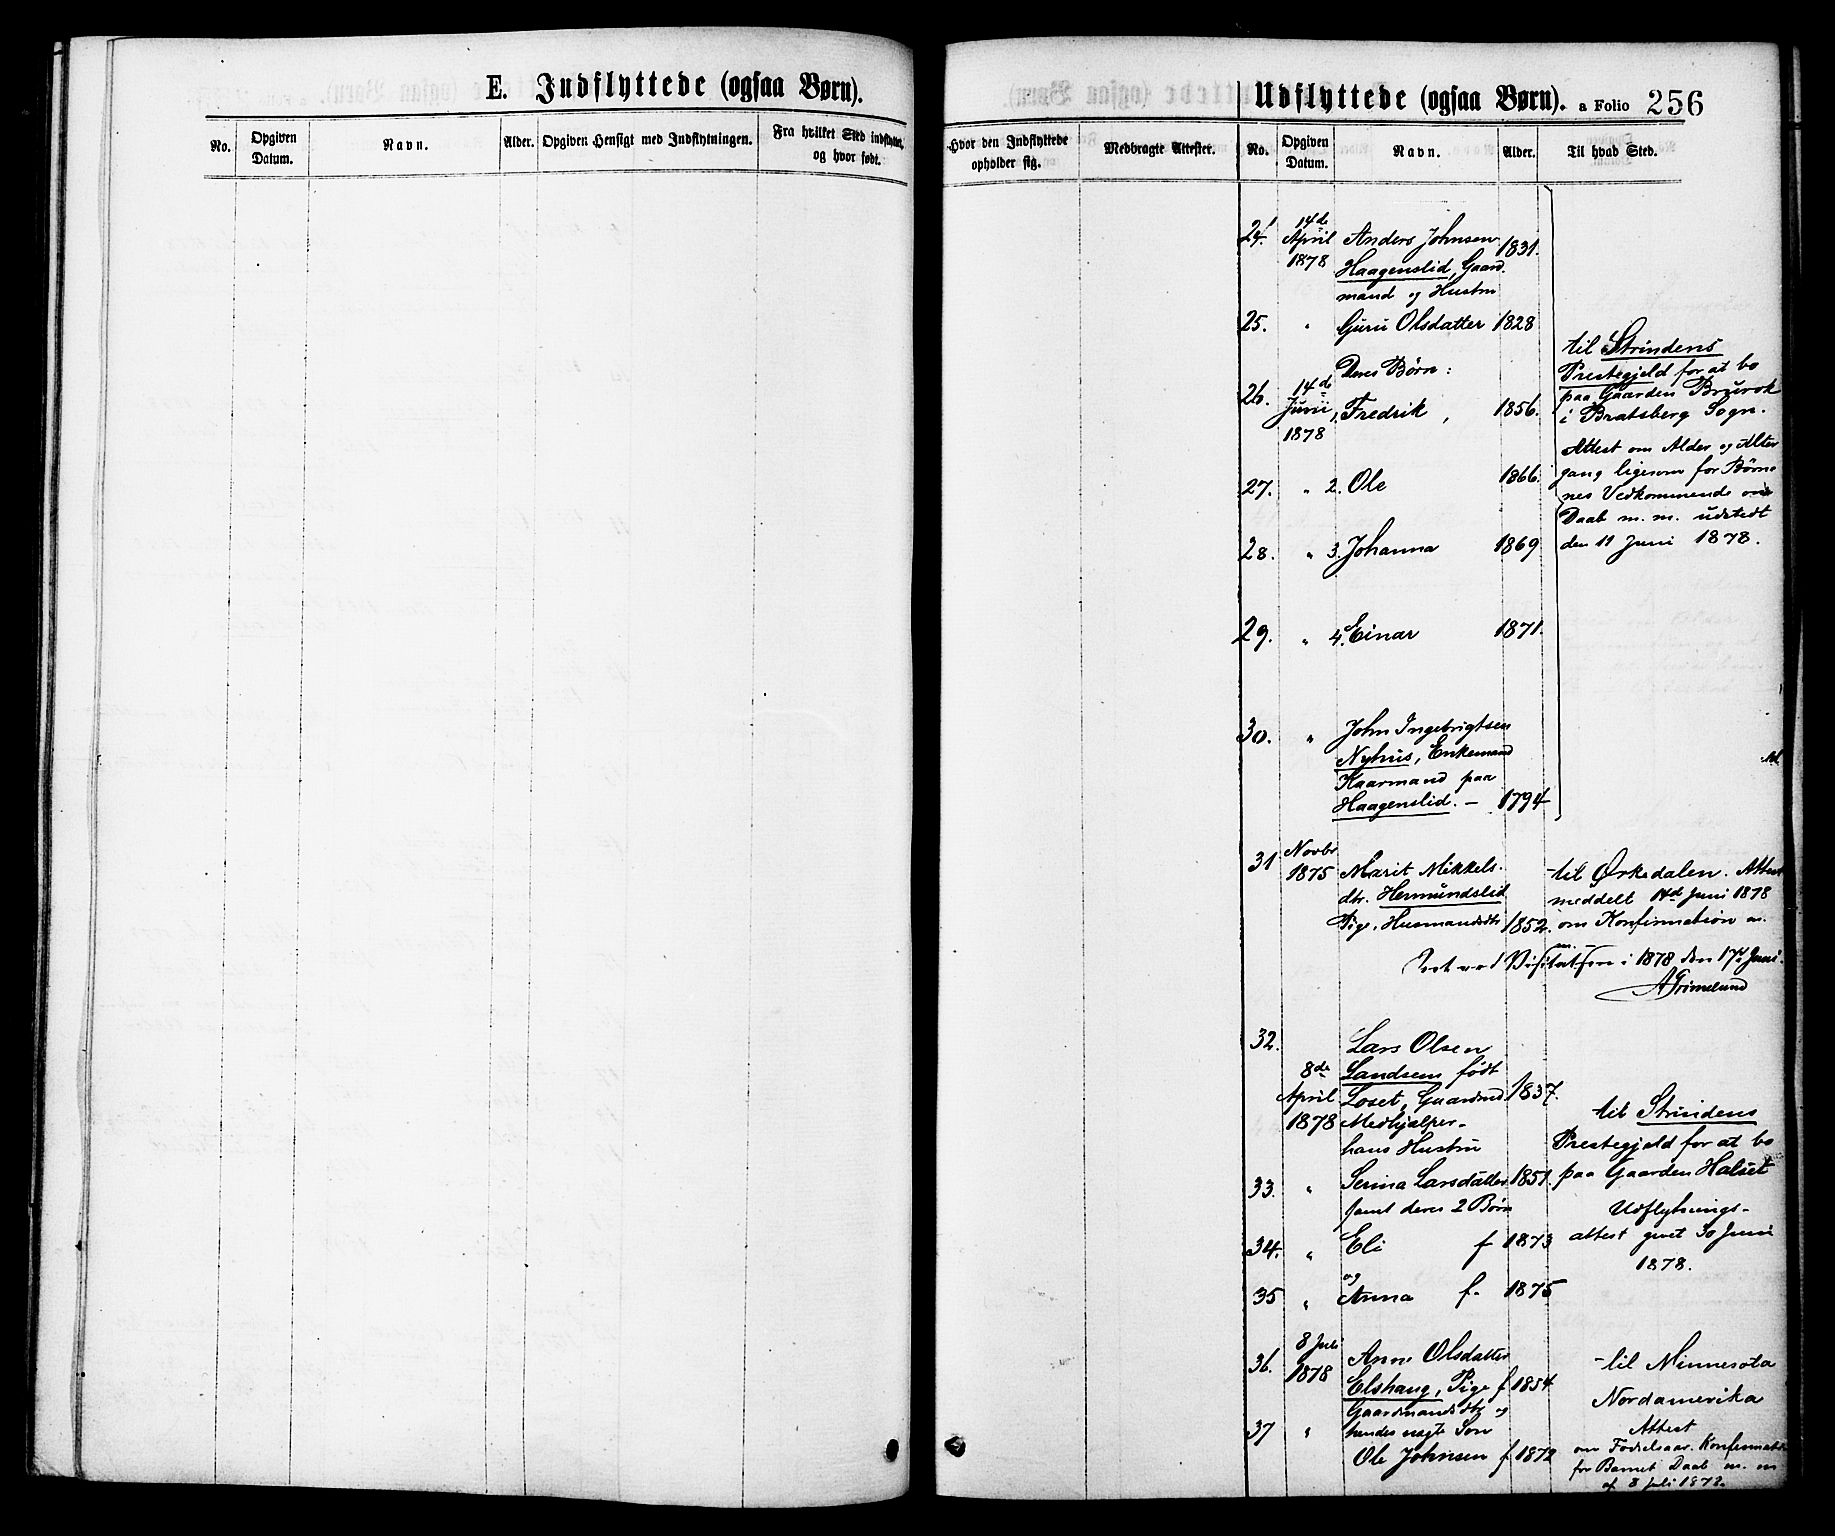 E. Indflyttede (ogsaa Børn).
No.
Opgiven Datum.
Navn.
Alder.
Opgiven Hensigt med Indflytningen.
Fra hvilket Sted indflyttet, og hvor født.
Udflyttede (ogsaa Børn). a Folio 256
Hvor den Indflyttede opholder sig.
Medbragte Attester.
No.
Opgiven Datum.
Navn.
Alder.
Til hvad Sted.
24. 14de April 1878 Anders Johnsen 1831.
Haagenslid, Gaard-
mand og Hustru
25. " Guru Olsdatter 1828
Deres Børn:
26. 14de Juni 1878 1, Fredrik, 1856.
27. " 2. Ole 1866.
28. " 3. Johanna 1869
29. " 4. Einar 1871.
30. " John Ingebrigtsen
Nyhus, Enkemand
Kaarmand paa
Haagenslid. — 1794
til Strindens
Prestegjeld for at bo
paa Gaarden Brurok
i Bratsberg Sogn.
Attest om Alder og Alter
gang ligesom for Børne
nes Vedkommende om
Daab m. m. udstedt
den 11 Juni 1878.
31 Novbr 1875 Marit Mikkels-
dtr. Hermundslid
Pige, Husmandsdtr 1852.
til Ørkedalen. Attest
meddelt 14de Juni 1878
om Konfirmation m.
m.
Seet ved Visitatsen i 1878 den 17de Juni.
AGrimelund
32. 8de April 1878 Lars Olsen
Landsem født
Loset, Gaardmd 1837.
Medhjælper-
hans Hustru
33. " Serina Larsdatter 1851.
samt deres 2 Børn
34. " Eli f 1873
og
35 " Anna f. 1875
til Strindens
Prestegjeld for at bo
paa Gaarden Halset
Udflytnings-
attest givet 30 Juni
1878.
36. 8 Juli 1878 Anne Olsdatter
Elshaug, Pige f 1854
Gaardmandsdtr og
37 " hendes uægte Søn
Ole Johnsen f 1872
til Minnesota
Nordamerika
Attest
om Fødselsaar. Konfirmation
for Barnet Daab m. m
af 8 Juli 1878.